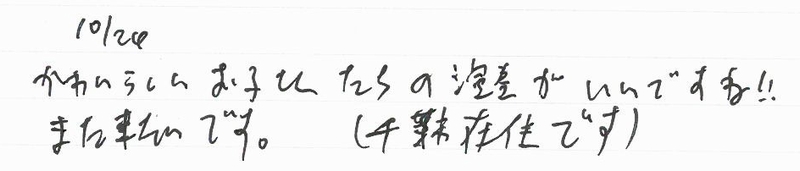 10/24
かわいらしいお子さんたちの演奏がいいですね!!
また来たいです。 (千葉在住です)